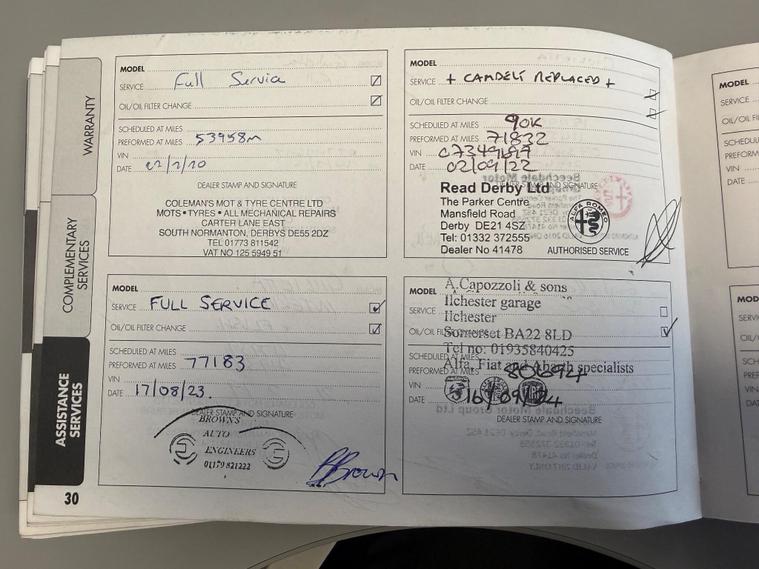 WARRANTY
COMPLEMENTARY
SERVICES
ASSISTANCE
SERVICES
30
MODEL
SERVICE Full Service
OIL/OIL FILTER CHANGE
SCHEDULED AT MILES
PREFORMED AT MILES 53958m
VIN
DATE
DEALER STAMP AND SIGNATURE
COLEMAN'S MOT & TYRE CENTRE LTD
MOTS • TYRES • ALL MECHANICAL REPAIRS
CARTER LANE EAST
SOUTH NORMANTON, DERBYS DE55 2DZ
TEL 01773 811542
VAT NO 125 5949 51
MODEL
SERVICE + CAMBELT REPLACED +
OIL/OIL FILTER CHANGE
SCHEDULED AT MILES 90K
PREFORMED AT MILES 71832
VIN
DATE 02/09/22
DEALER STAMP AND SIGNATURE
Read Derby Ltd
The Parker Centre
Mansfield Road
Derby DE21 4SZ
Tel: 01332 372555
Dealer No 41478
ALFA ROMEO
AUTHORISED SERVICE
MODEL
SERVICE FULL SERVICE
OIL/OIL FILTER CHANGE
SCHEDULED AT MILES
PREFORMED AT MILES 77183
VIN
DATE 17/08/23.
DEALER STAMP AND SIGNATURE
BROWNS
AUTO
ENGINEERS
01179 821222
BBrown
MODEL
SERVICE
OIL/OIL FILTER CHANGE
SCHEDULED AT MILES
PREFORMED AT MILES 80694
VIN
DATE 16/09/24
A.Capozzoli & sons
Ilchester garage
Ilchester
Somerset BA22 8LD
Tel no: 01935840425
Alfa, Fiat and Abarth specialists
DEALER STAMP AND SIGNATURE
MODEL
SERVICE
MODEL